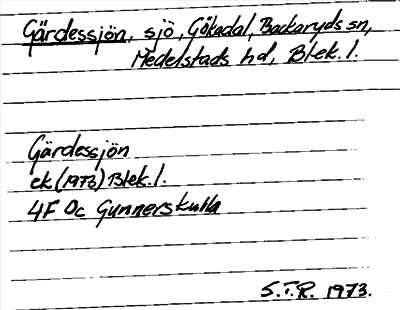 Gärdessjön, sjö, Gökadal, Backaryds sn,
Medelstads hd, Blek. l.
Gärdessjön
ek (1973) Blek. l.
4F 0c Gunnerskulla
S.T.R. 1973.